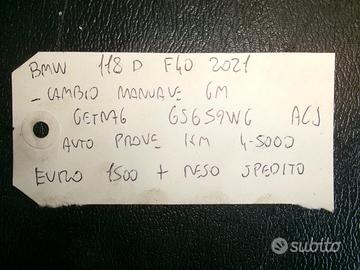 BMW 118 D F40 2021
- CAMBIO MANUALE 6M
GETRAG GS659WG ACJ
AUTO PROVE KM 4-5000
EURO 1500 + RESO SPEDITO
subito